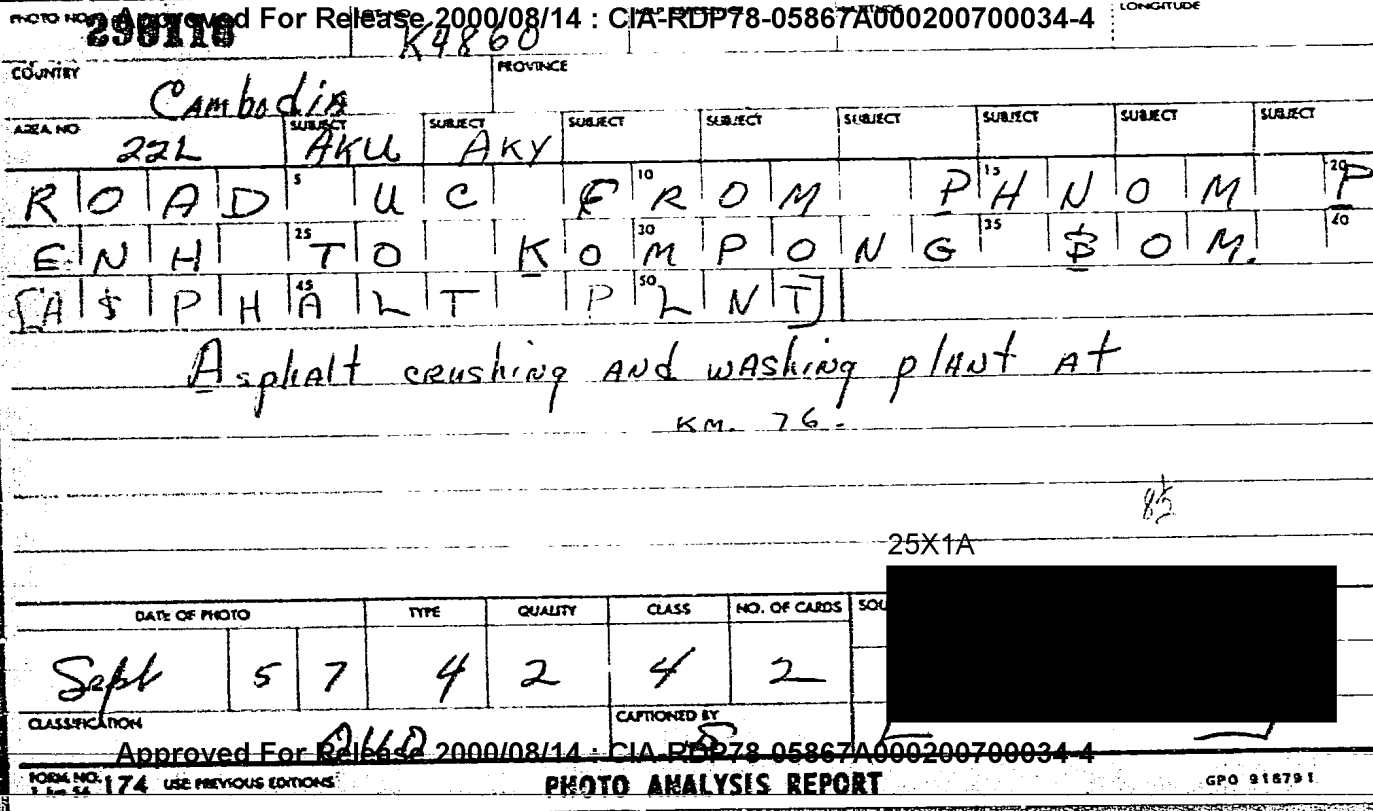 PHOTO NO. Approved For Release 2000/08/14 : CIA-RDP78-05867A000200700034-4 LONGITUDE
K4860
COUNTRY PROVINCE
Cambodia
AREA NO. SUBJECT SUBJECT SUBJECT SUBJECT SUBJECT SUBJECT SUBJECT SUBJECT
22L AKU AKY
5 10 15 20
ROAD UC FROM PHNOM P
25 30 35 40
ENH TO KOMPONG $OM.
45 50
[A$PHALT PLNT]
Asphalt crushing and washing plant at
KM. 76.
85
25X1A
DATE OF PHOTO TYPE QUALITY CLASS NO. OF CARDS SOU
Sept 5 7 4 2 4 2
CLASSIFICATION CAPTIONED BY
Approved For Release 2000/08/14 : CIA-RDP78-05867A000200700034-4
FORM NO. 174 USE PREVIOUS EDITIONS PHOTO ANALYSIS REPORT GPO 918791